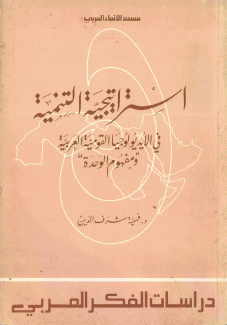 معهد الانماء العربي
استراتيجية التنمية
في الايديولوجيا القومية العربية
"ومفهوم الوحدة"
د. فهمية شرف الدين
دراسات الفكر العربي